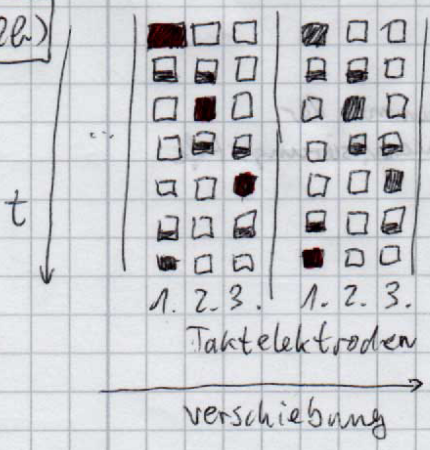 ...
t
1. 2. 3. 1. 2. 3.
Taktelektroden
verschiebung